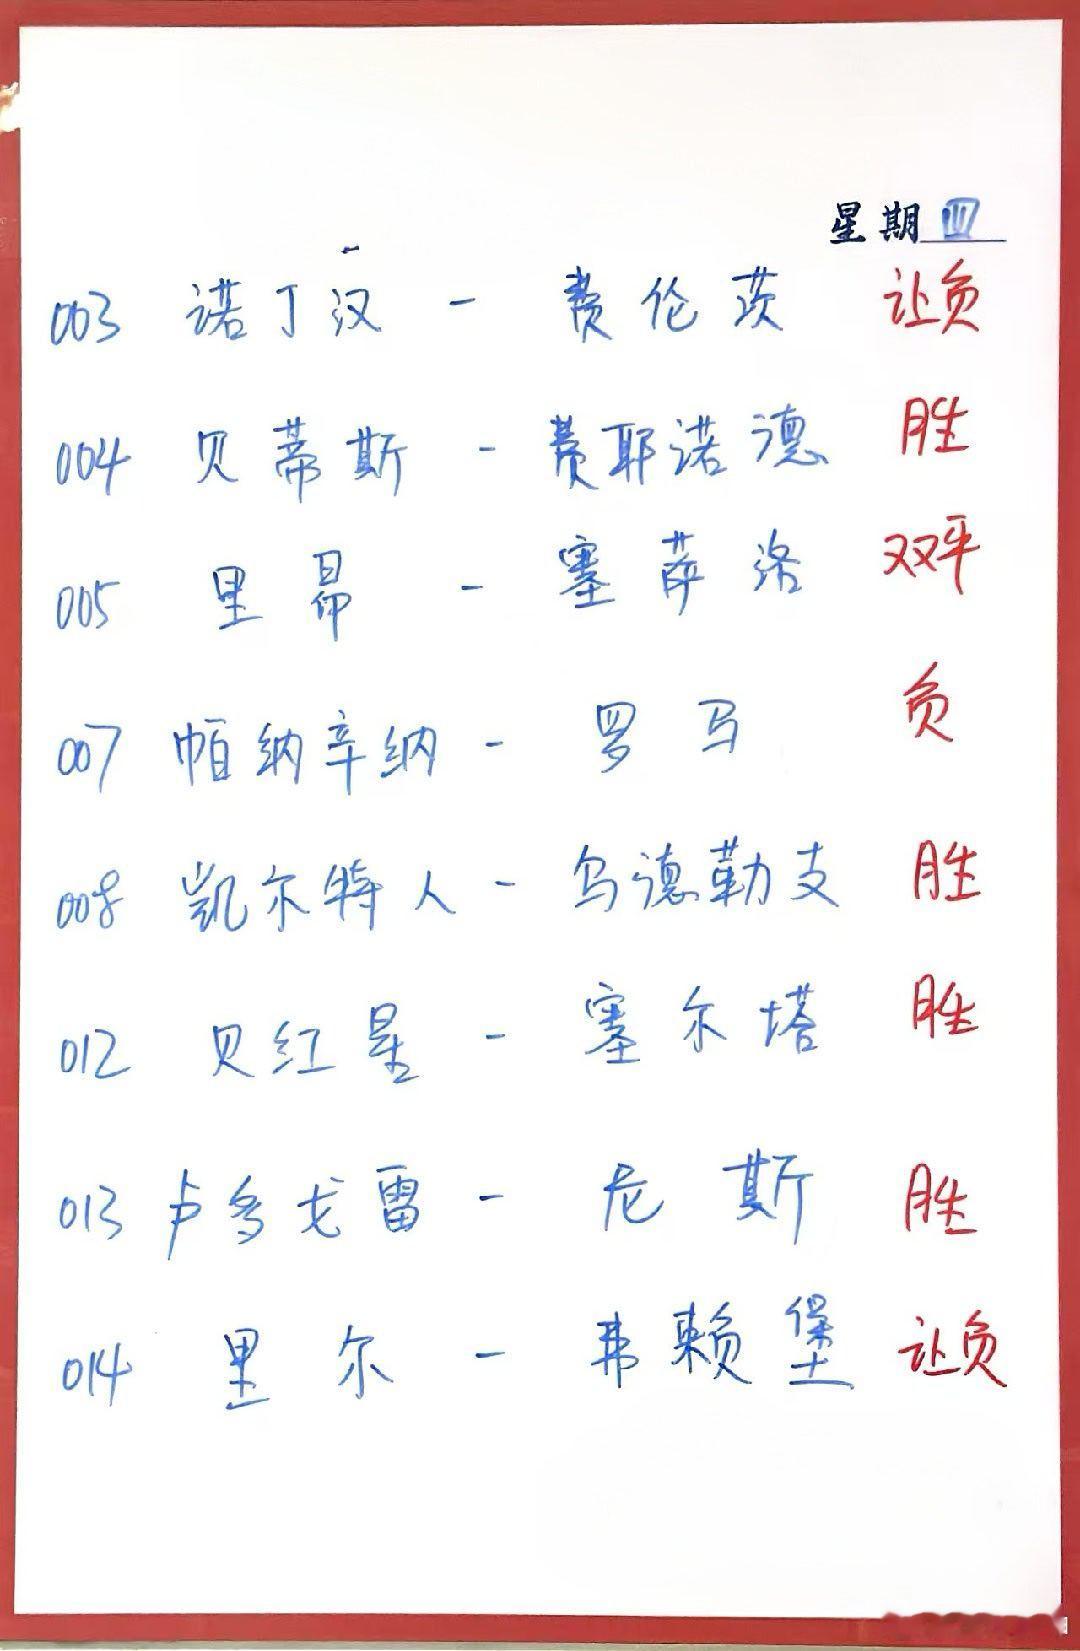 星期四
003 诺丁汉 - 费伦茨 让负
004 贝蒂斯 - 费耶诺德 胜
005 里昂 - 塞萨洛 双平
007 帕纳辛纳 - 罗马 负
008 凯尔特人 - 乌德勒支 胜
012 贝红星 - 塞尔塔 胜
013 卢多戈雷 - 尼斯 胜
014 里尔 - 弗赖堡 让负